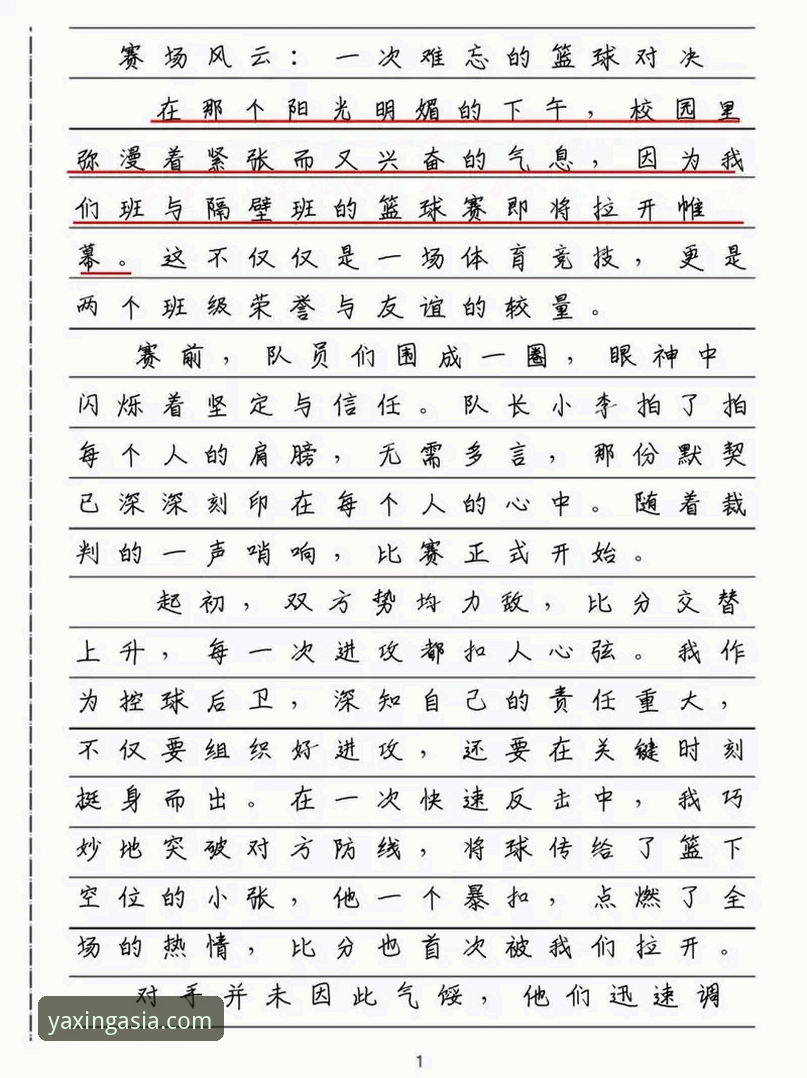 赛场风云：一次难忘的篮球对决
在那个阳光明媚的下午，校园里
弥漫着紧张而又兴奋的气息，因为我
们班与隔壁班的篮球赛即将拉开帷
幕。这不仅仅是一场体育竞技，更是
两个班级荣誉与友谊的较量。
赛前，队员们围成一圈，眼神中
闪烁着坚定与信任。队长小李拍了拍
每个人的肩膀，无需多言，那份默契
已深深刻印在每个人的心中。随着裁
判的一声哨响，比赛正式开始。
起初，双方势均力敌，比分交替
上升，每一次进攻都扣人心弦。我作
为控球后卫，深知自己的责任重大，
不仅要组织好进攻，还要在关键时刻
挺身而出。在一次快速反击中，我巧
妙地突破对方防线，将球传给了篮下
空位的小张，他一个暴扣，点燃了全
场的热情，比分也首次被我们拉开。
对手并未因此气馁，他们迅速调
yaxingasia.com
1